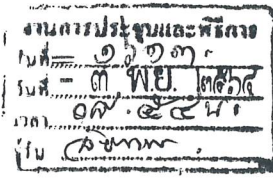 งานการประชุมและพิธีการ
รับที่ ๑๖๑๓
วันที่ - ๓ พ.ย. ๒๕๖๔
เวลา ๐๙.๕๔ น.
ผู้รับ